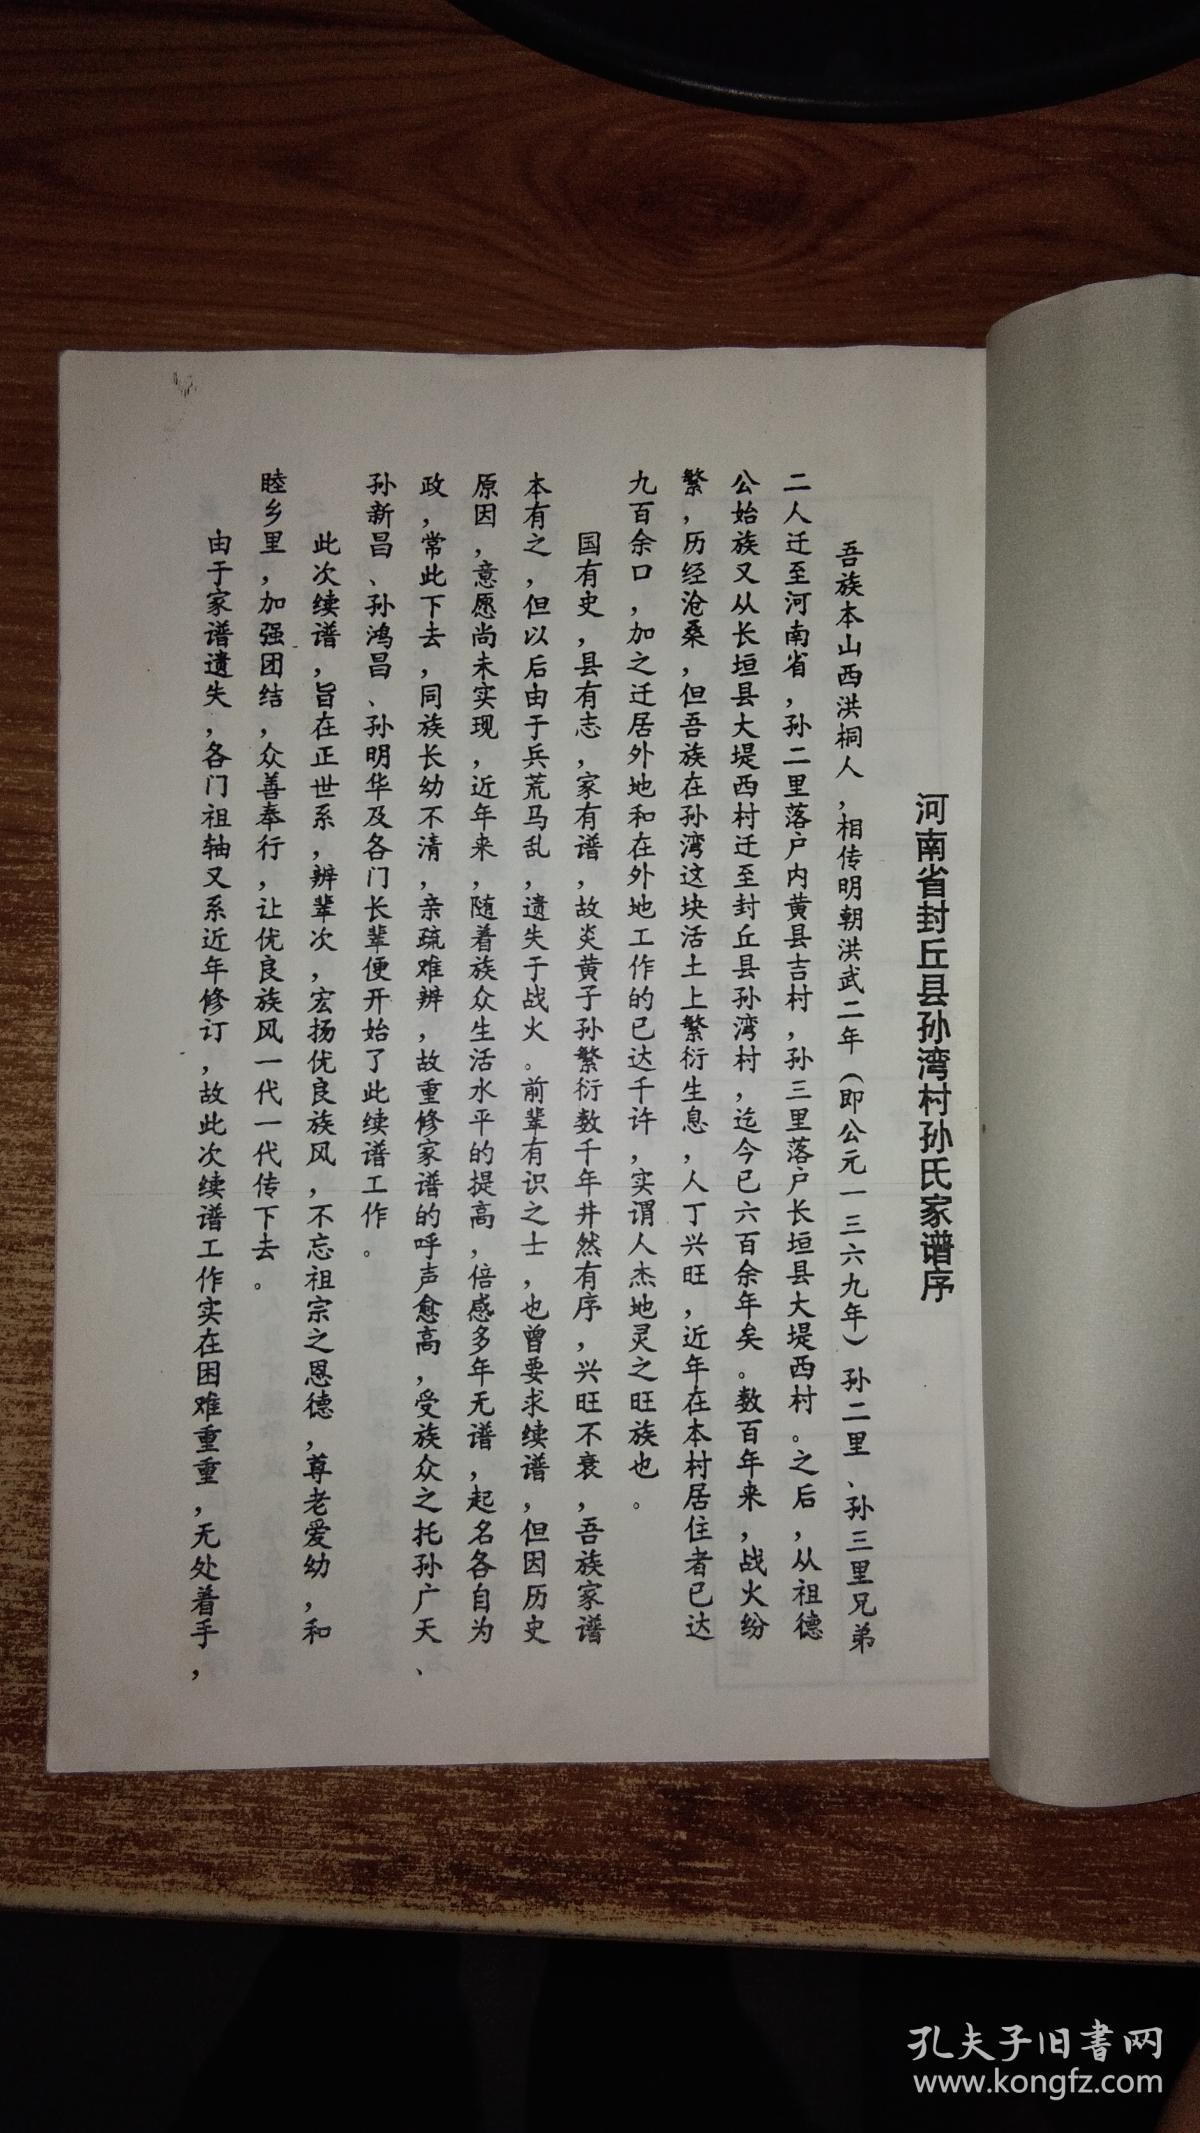 河南省封丘县孙湾村孙氏家谱序
吾族本山西洪桐人，相传明朝洪武二年（即公元一三六九年）孙二里、孙三里兄弟
二人迁至河南省，孙二里落户内黄县吉村，孙三里落户长垣县大堤西村。之后，从祖德
公始族又从长垣县大堤西村迁至封丘县孙湾村，迄今已六百余年矣。数百年来，战火纷
繁，历经沧桑，但吾族在孙湾这块活土上繁衍生息，人丁兴旺，近年在本村居住者已达
九百余口，加之迁居外地和在外地工作的已达千许，实谓人杰地灵之旺族也。
国有史，县有志，家有谱，故炎黄子孙繁衍数千年井然有序，兴旺不衰，吾族家谱
本有之，但以后由于兵荒马乱，遗失于战火。前辈有识之士，也曾要求续谱，但因历史
原因，意愿尚未实现，近年来，随着族众生活水平的提高，倍感多年无谱，起名各自为
政，常此下去，同族长幼不清，亲疏难辨，故重修家谱的呼声愈高，受族众之托孙广天、
孙新昌、孙鸿昌、孙明华及各门长辈便开始了此续谱工作。
此次续谱，旨在正世系，辨辈次，宏扬优良族风，不忘祖宗之恩德，尊老爱幼，和
睦乡里，加强团结，众善奉行，让优良族风一代一代传下去。
由于家谱遗失，各门祖轴又系近年修订，故此次续谱工作实在困难重重，无处着手，
孔夫子旧书网
www.kongfz.com